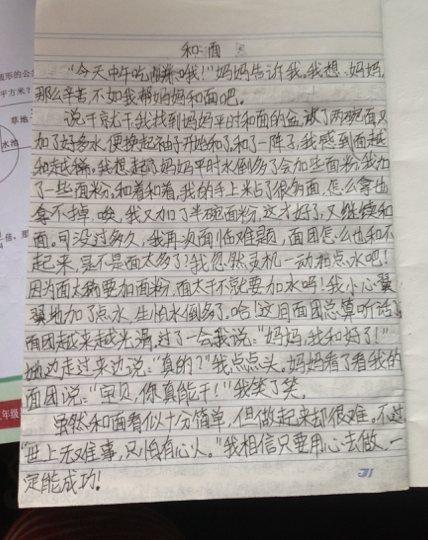 和面
"今天中午吃 哦!"妈妈告诉我。我想:妈妈
那么辛苦不如我帮妈妈和面吧。
说干就干我找到妈妈平时和面的盆,放了两碗面又
加了好多水,便挽起袖子开始和了,和了一阵子,我感到面越
和越稀。我想起了妈妈平时水倒多了会加些面粉,我加
了一些面粉。和着和着,我的手上粘了很多面,怎么拿也
拿不掉。唉,我又加了半碗面粉,这才好了,又继续和
面。可没过多久,我再次面临难题,面团怎么也和不
起来,是不是面太多了?我忽然灵机一动加点水吧!
因为面太稀要加面粉,面太干不就要加水吗!我小心翼
翼地加了点水,生怕水倒多了。哈!这日面团总算听话了
面团越来越光滑,过了一会我说:"妈妈,我和好了!"
她边走过来边说:"真的?"我点点头。妈妈看了看我的
面团说:"宝贝,你真能干!"我笑了笑。
虽然和面看似十分简单,但做起来却很难。不过
"世上无难事,只怕有心人。"我相信只要用心去做,一
定能成功!
草地
水池
年级